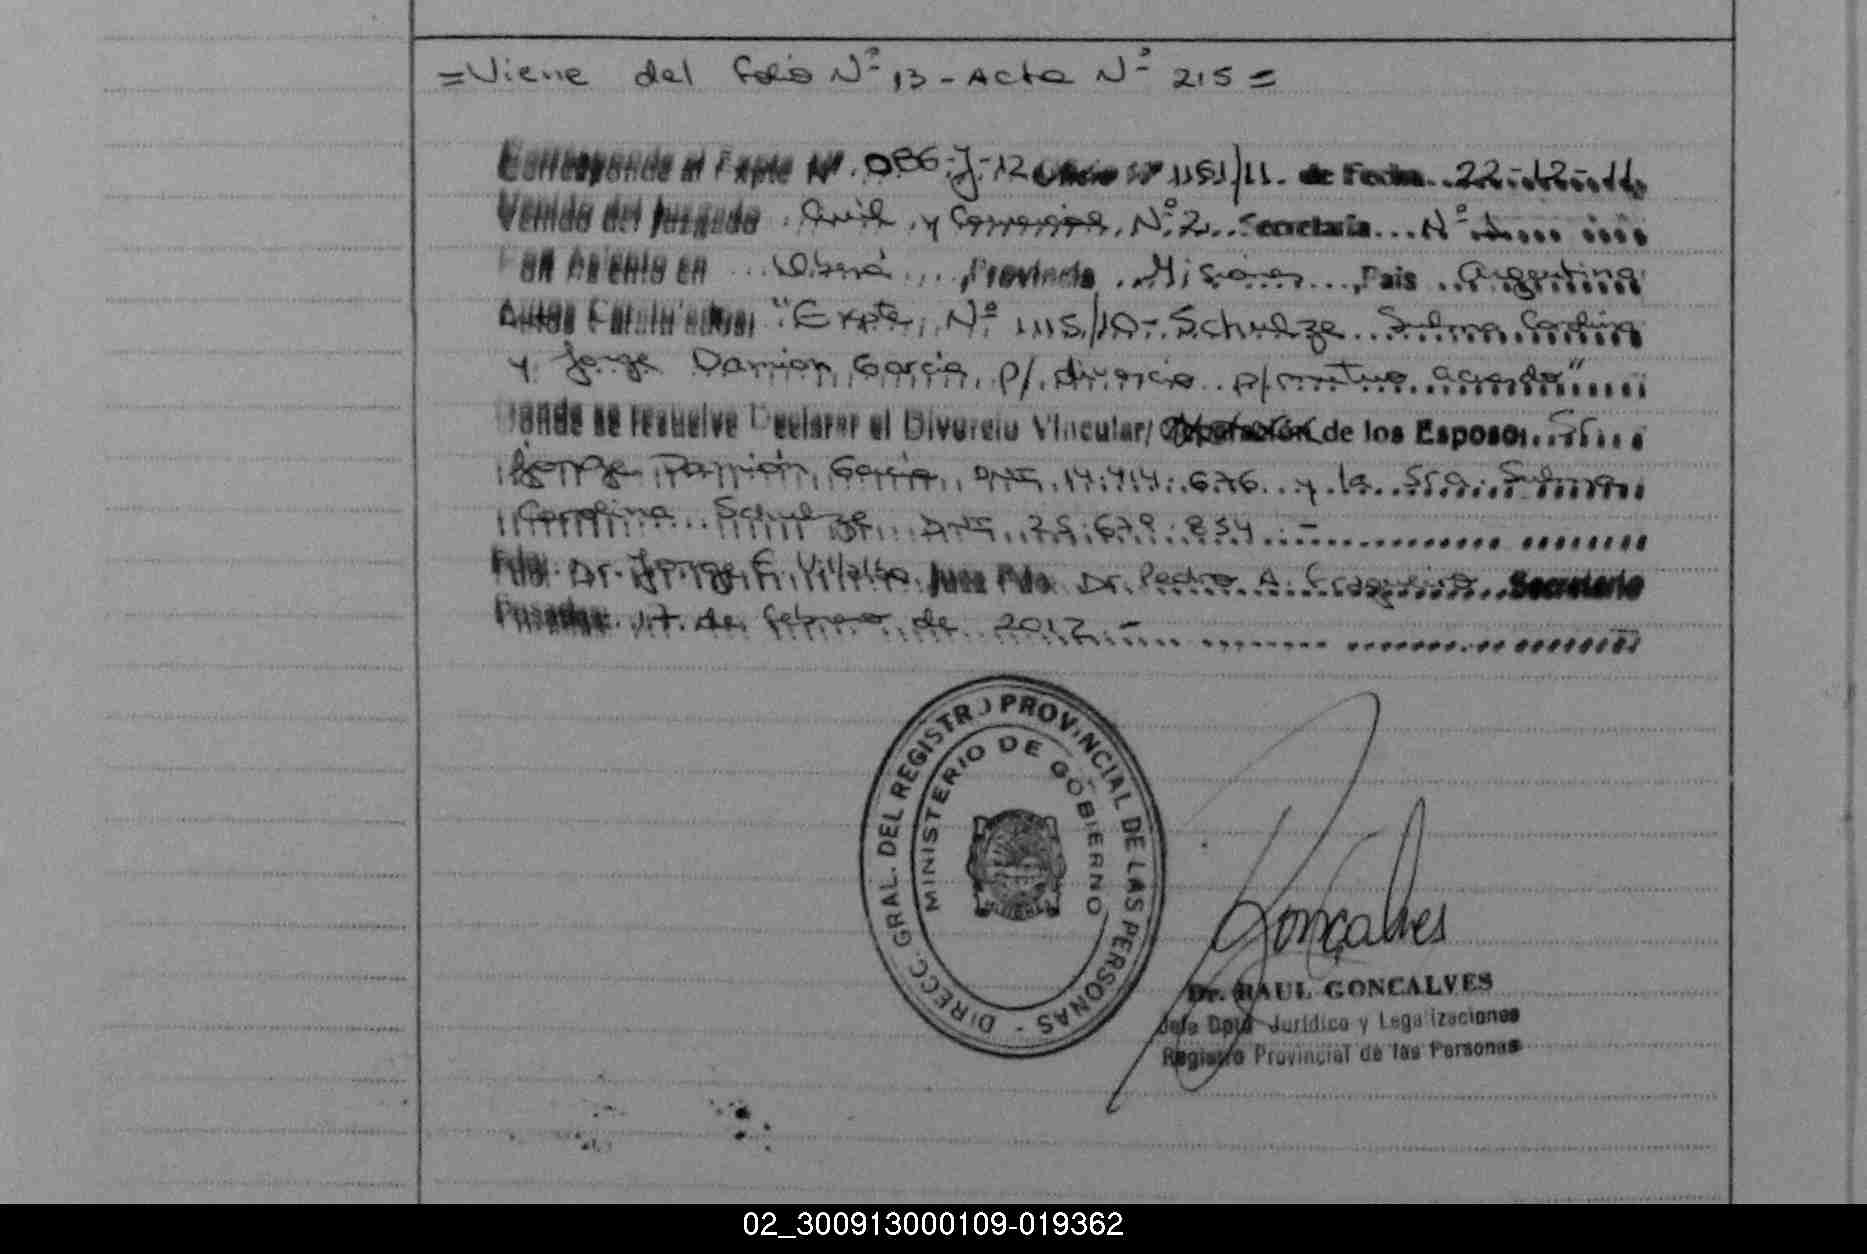 =Viene del folio Nº 13 - Acta Nº 215=
Corresponde al Expte Nº. 086-J-12 Oficio Nº 1151/11. de Fecha. 22-12-11,
Venido del Juzgado Civil y Comercial Nº 2. Secretaría Nº 1
Con Asiento en Oberá, Provincia Misiones, País Argentina
Autos Caratulados: "Expte. Nº 1115/10- Schulze Sulma Carolina
y Jorge Damian García p/ divorcio p/mutuo acuerdo"
Donde se resuelve Declarar el Divorcio Vincular/ Separación de los Esposos, Sr.
Jorge Damián García DNI 14.414.676 y la Sra. Sulma
Carolina Schulze DNI 25.679.854.-
Fdo. Dr. Jorge E. Villalba Juez Fdo. Dr. Pedro A. Secretario
Posadas. 17 de febrero de 2012.-
DIRECC. GRAL. DEL REGISTRO PROVINCIAL DE LAS PERSONAS -
MINISTERIO DE GOBIERNO
MISIONES
Gonçalves
Dr. RAUL GONCALVES
Jefe Dpto Jurídico y Legalizaciones
Registro Provincial de las Personas
02_300913000109-019362